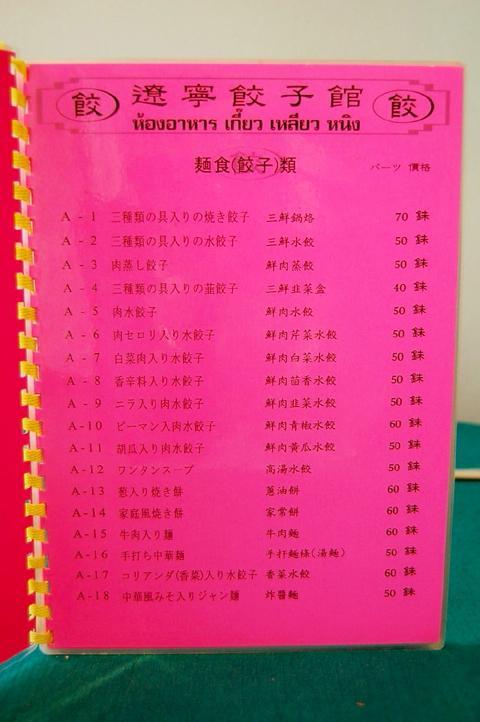 餃 遼寧餃子館 餃
ห้องอาหาร เกี๊ยว เหลียว หนิง
麺食(餃子)類 バーツ 價格
A - 1 三種類の具入りの焼き餃子 三鮮鍋烙 70 銖
A - 2 三種類の具入りの水餃子 三鮮水餃 50 銖
A - 3 肉蒸し餃子 鮮肉蒸餃 50 銖
A - 4 三種類の具入りの韮餃子 三鮮韭菜盒 40 銖
A - 5 肉水餃子 鮮肉水餃 50 銖
A - 6 肉セロリ入り水餃子 鮮肉芹菜水餃 50 銖
A - 7 白菜肉入り水餃子 鮮肉白菜水餃 50 銖
A - 8 香辛料入り水餃子 鮮肉茴香水餃 50 銖
A - 9 ニラ入り肉水餃子 鮮肉韭菜水餃 50 銖
A-10 ピーマン入肉水餃子 鮮肉青椒水餃 60 銖
A-11 胡瓜入り肉水餃子 鮮肉黃瓜水餃 50 銖
A-12 ワンタンスープ 高湯水餃 50 銖
A-13 葱入り焼き餅 蔥油餅 60 銖
A-14 家庭風焼き餅 家常餅 60 銖
A-15 牛肉入り麺 牛肉麵 60 銖
A-16 手打ち中華麺 手打麵條(湯麵) 50 銖
A-17 コリアンダ(香菜)入り水餃子 香菜水餃 60 銖
A-18 中華風みそ入りジャン麺 炸醬麵 50 銖